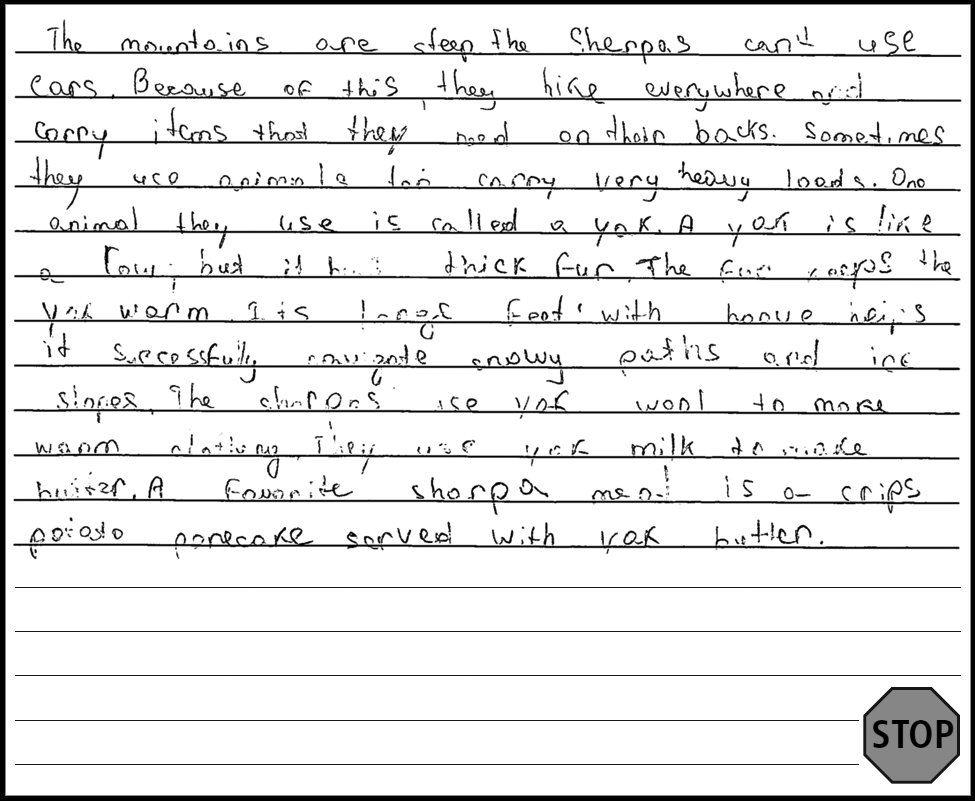 The mountains are steep The Sherpas can't use
cars. Because of this, they hike everywhere and
carry items that they need on their backs. Sometimes
they use animals for carry very heavy loads. One
animal they use is called a yak. A yak is like
a cow, but it has thick fur. The fur keeps the
yak warm. Its large feet with hooves helps
it successfully navigate snowy paths and ice
slopes. The sherpas use yak wool to make
warm clothing. They use yak milk to make
butter. A favorite sherpa meal is a crips
potato panecake served with yak butter.
STOP